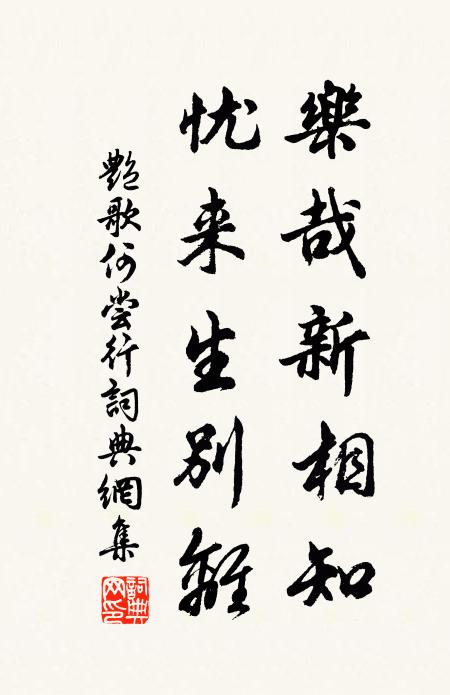 樂哉新相知
忧来生別離
艶歌何嘗行詞典網集
詞典网印